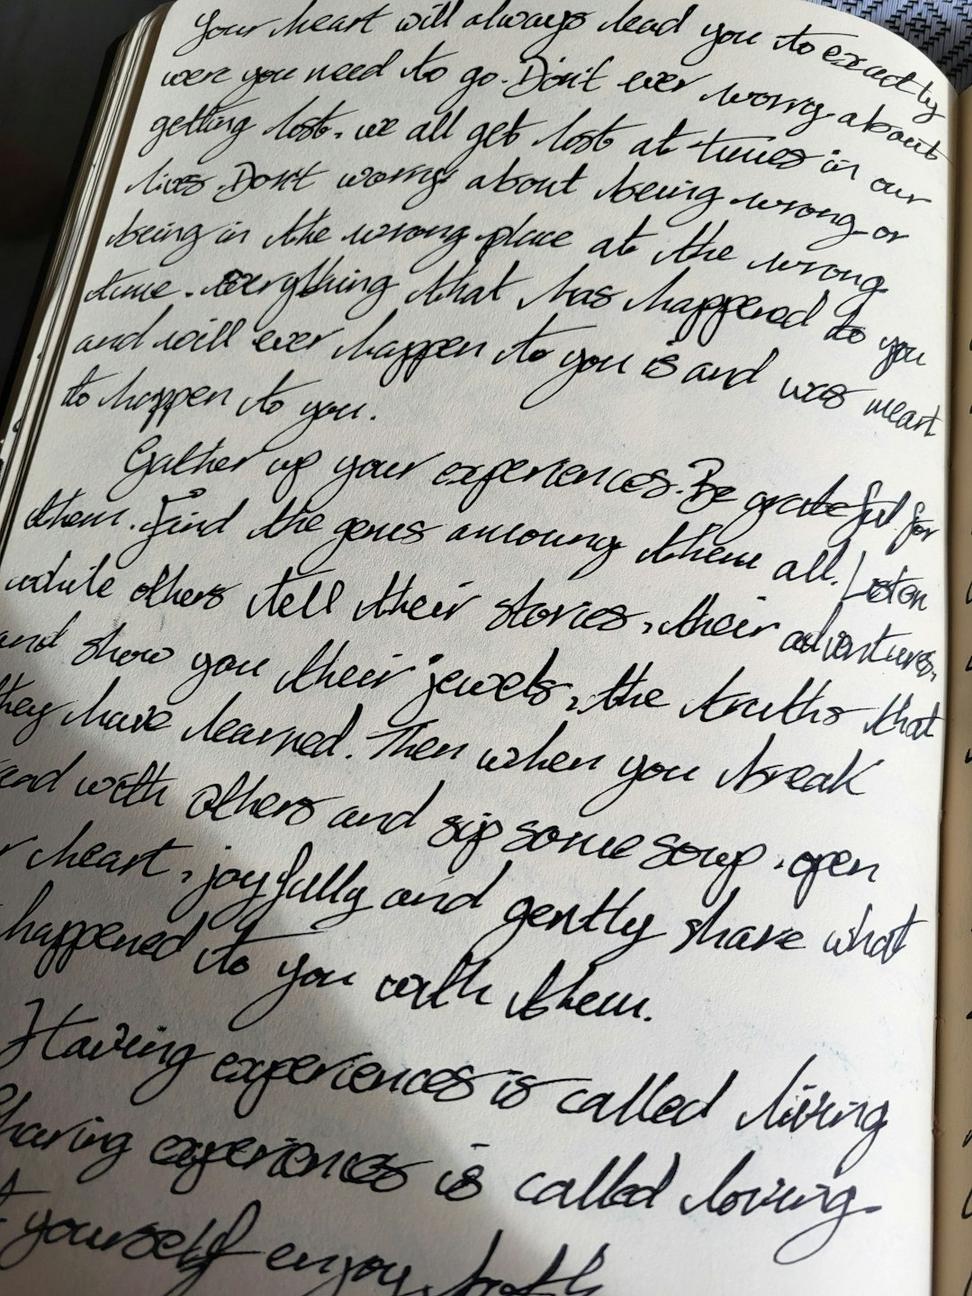 Your heart will always lead you to exactly
were you need to go. Don't ever worry about
getting lost, we all get lost at times in our
lives. Don't worry about being wrong or
being in the wrong place at the wrong
time. Everything that has happened to you
and will ever happen to you is and was meant
to happen to you.
Gather up your experiences. Be grateful for
them. Find the gems amoung them all. Listen
while others tell their stories, their adventures,
and show you their jewels, the truths that
they have learned. Then when you break
and with others and sip some soup, open
r heart, joyfully and gently share what
happened to you with them.
Having experiences is called living
Sharing experiences is called loving.
t yourself enjoy both